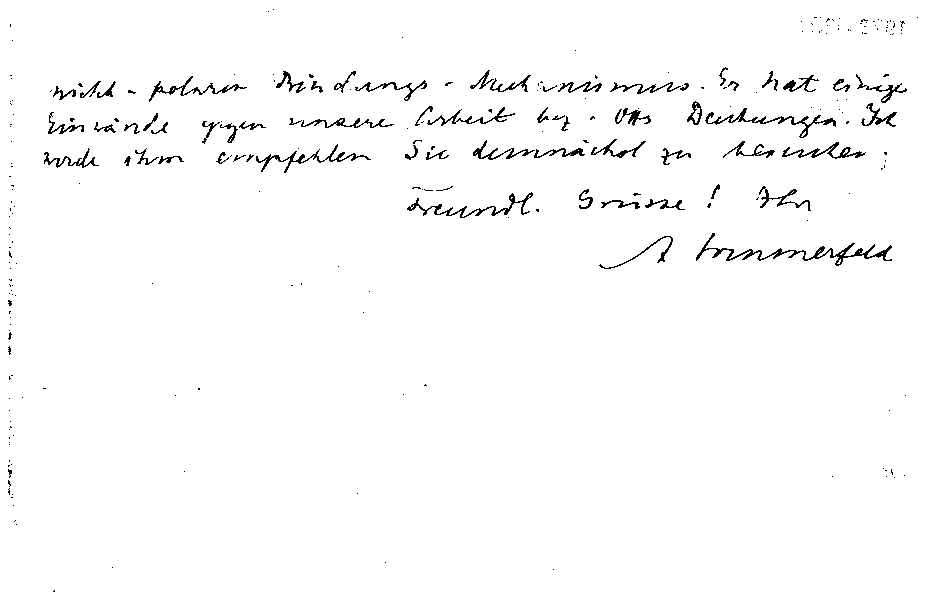 nicht-polaren Bindungs-Mechanismus. Er hat einige
Einwände gegen unsere Arbeit bez. Deutungen. Ich
werde ihm empfehlen Sie demnächst zu besuchen.
Freundl. Grüsse! Ihr
A Sommerfeld